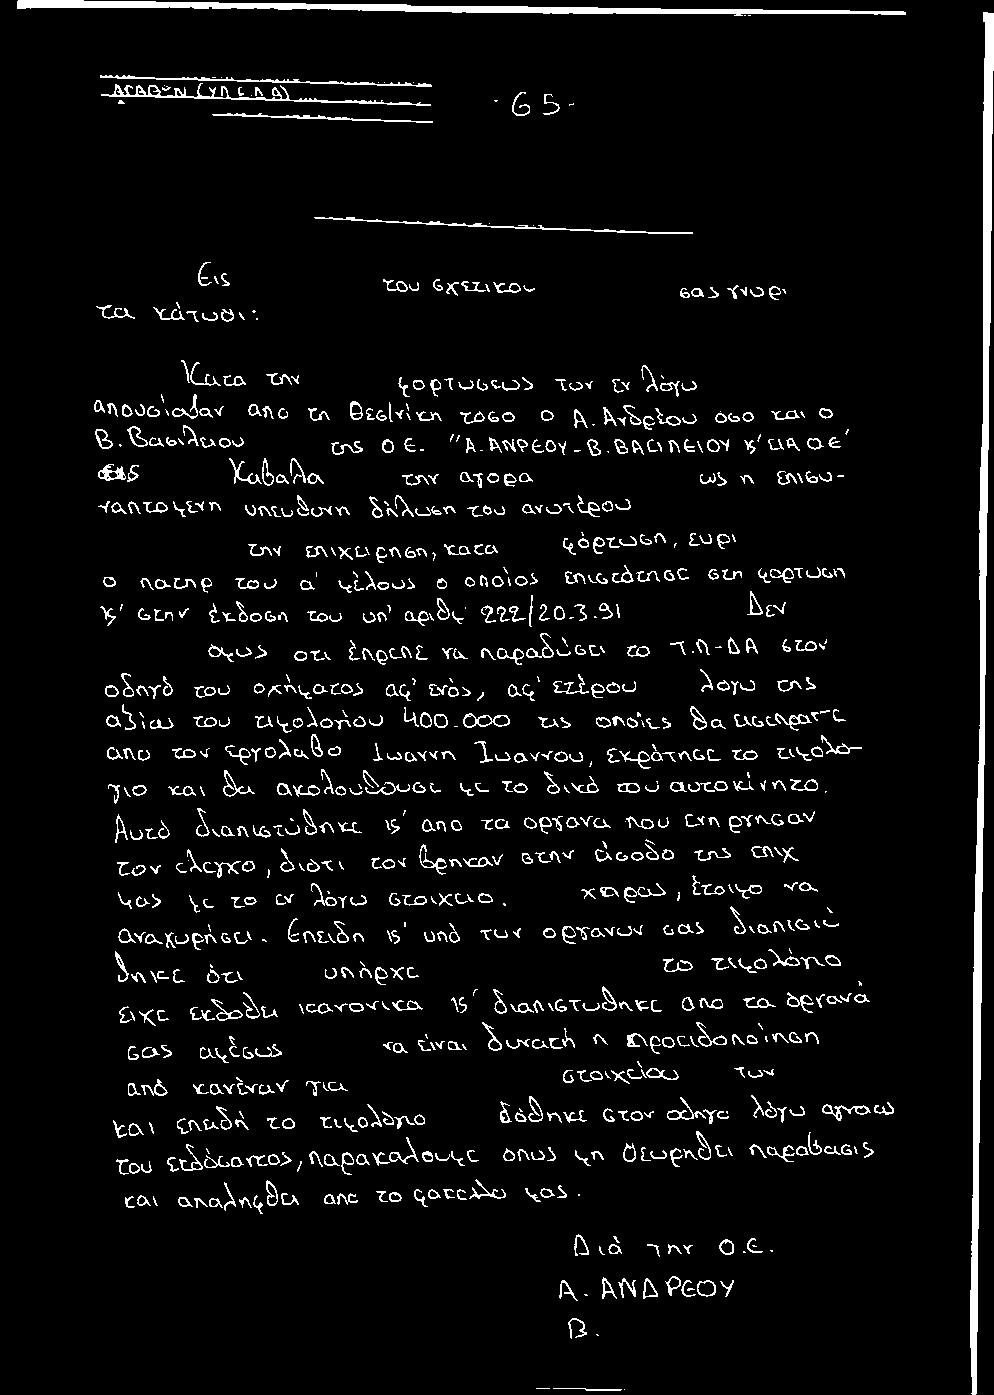 ΑΓΑΘΩΝ (ΥΠ.Ε.Δ.Α)
-65-
Εις του σχετικου σας γνωρι
τα κάτωθι:
Κατα την φορτωσεως των εν λόγω
απουσίαζαν απο τη Θεσ/νίκη τοσο ο Α. Ανδρέου οσο και ο
Β. Βασιλειου της Ο Ε. "Α. ΑΝΡΕΟΥ-Β. ΒΑΣΙΛΕΙΟΥ Κ' ΣΙΑ Ο Ε"
εις Καβαλα την αγορα ως η επισυ-
ναπτομενη υπευθυνη δήλωση του ανωτέρου
την επιχειρηση, κατα φόρτωση, ευρι
ο πατηρ του α' μέλους ο οποίος επιστάτησε στη φορτωση
κ' στην έκδοση του υπ' αριθμ 222/20.3.91 Δεν
ομως οτι έπρεπε να παραδώσει το Τ.Π-ΔΑ στον
οδηγό του οχήματος αφ' ενός, αφ' ετέρου λογω της
αξίας του τιμολογίου 400.000 τις οποίες θα εισεπραττε
απο τον εργολαβο Ιωαννη Ιωαννου, εκράτησε το τιμολό-
γιο και θα ακολουθουσε με το δικό του αυτοκίνητο.
Αυτό διαπιστώθηκε κ' απο τα οργανα που ενηργησαν
τον ελεγχο, διότι τον βρηκαν στην είσοδο της επιχ
μας με το εν λόγω στοιχειο. χειρας, έτοιμο να
αναχωρήσει. Επειδη κ' υπό των οργανων σας διαπιστώ
θηκε ότι υπήρχε το τιμολόγιο
ειχε εκδοθει κανονικα κ' διαπιστωθηκε απο τα όργανά
σας αμέσως να είναι δυνατή η προειδοποίηση
από κανέναν για στοιχείου των
και επειδή το τιμολόγιο δόθηκε στον οδηγο λόγω αγνοιας
του εκδόσαντος, παρακαλουμε οπως μη θεωρηθει παραβασις
και απαλειφθει απο το φακελο μας.
Διά την Ο.Ε.
Α. ΑΝΔΡΕΟΥ
Β.